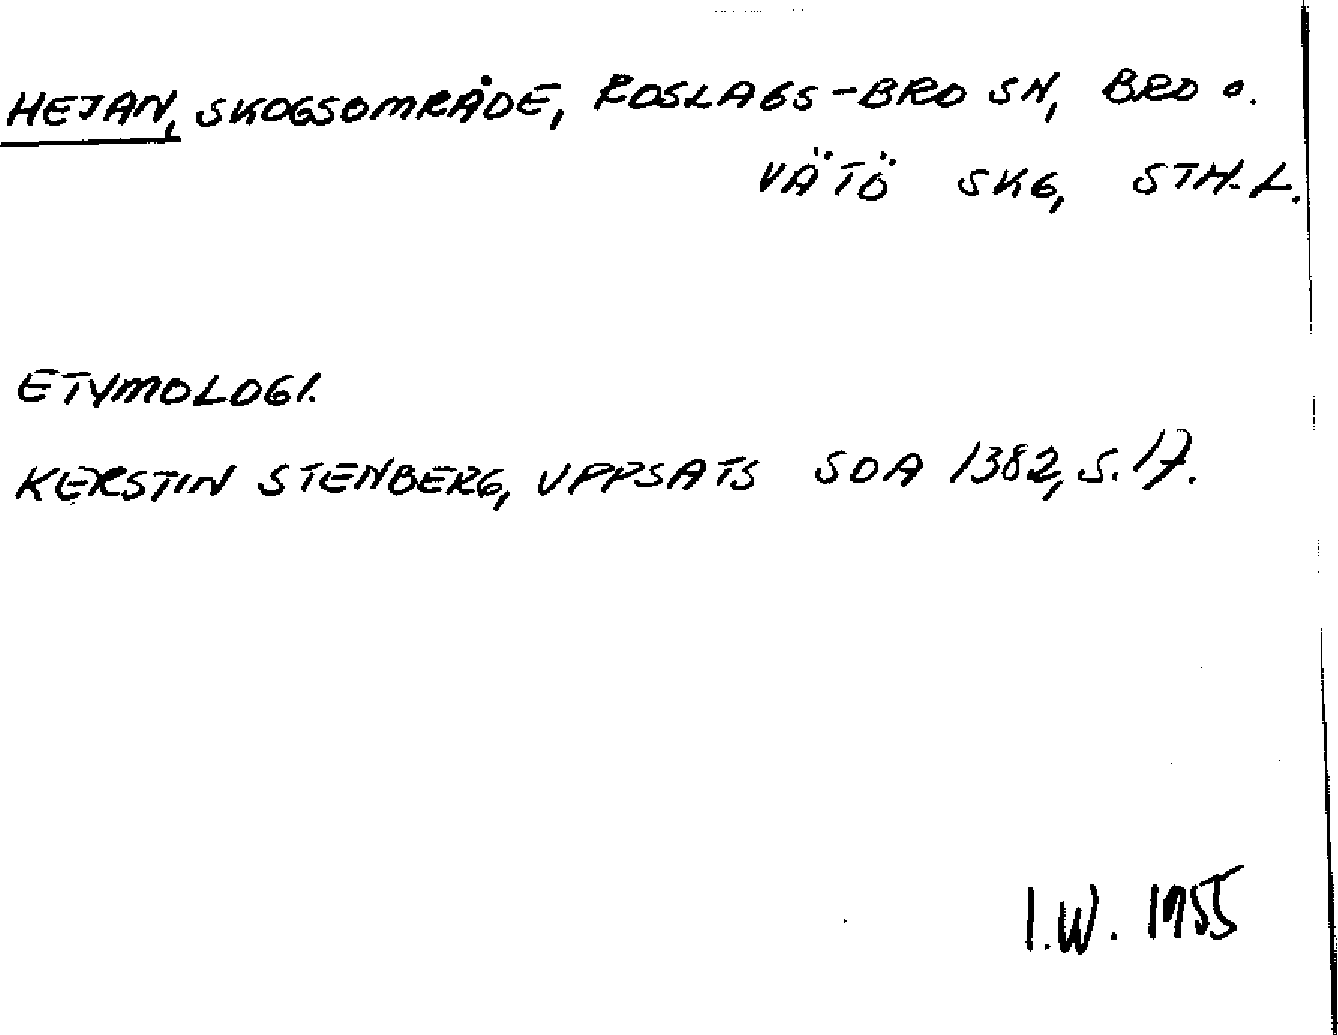 HEJAN, SKOGSOMRÅDE, ROSLAGS-BRO SN, BRO O.
VÄTÖ SKG, STH.L.
ETYMOLOGI.
KERSTIN STENBERG, UPPSATS SOA 1382, S. 17.
I.W. 1955